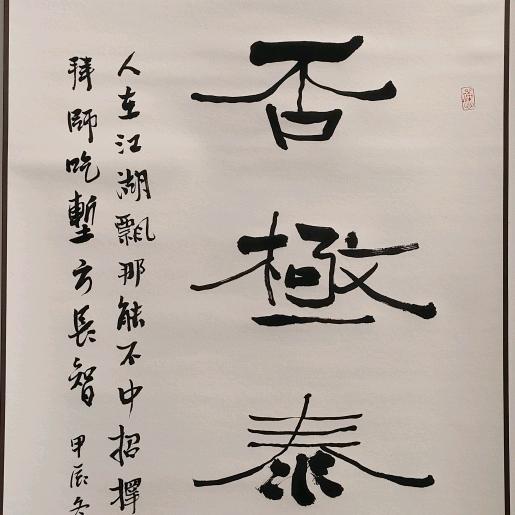 否極泰
人在江湖飄那能不中招擇
拜師吃塹方長智 甲辰冬